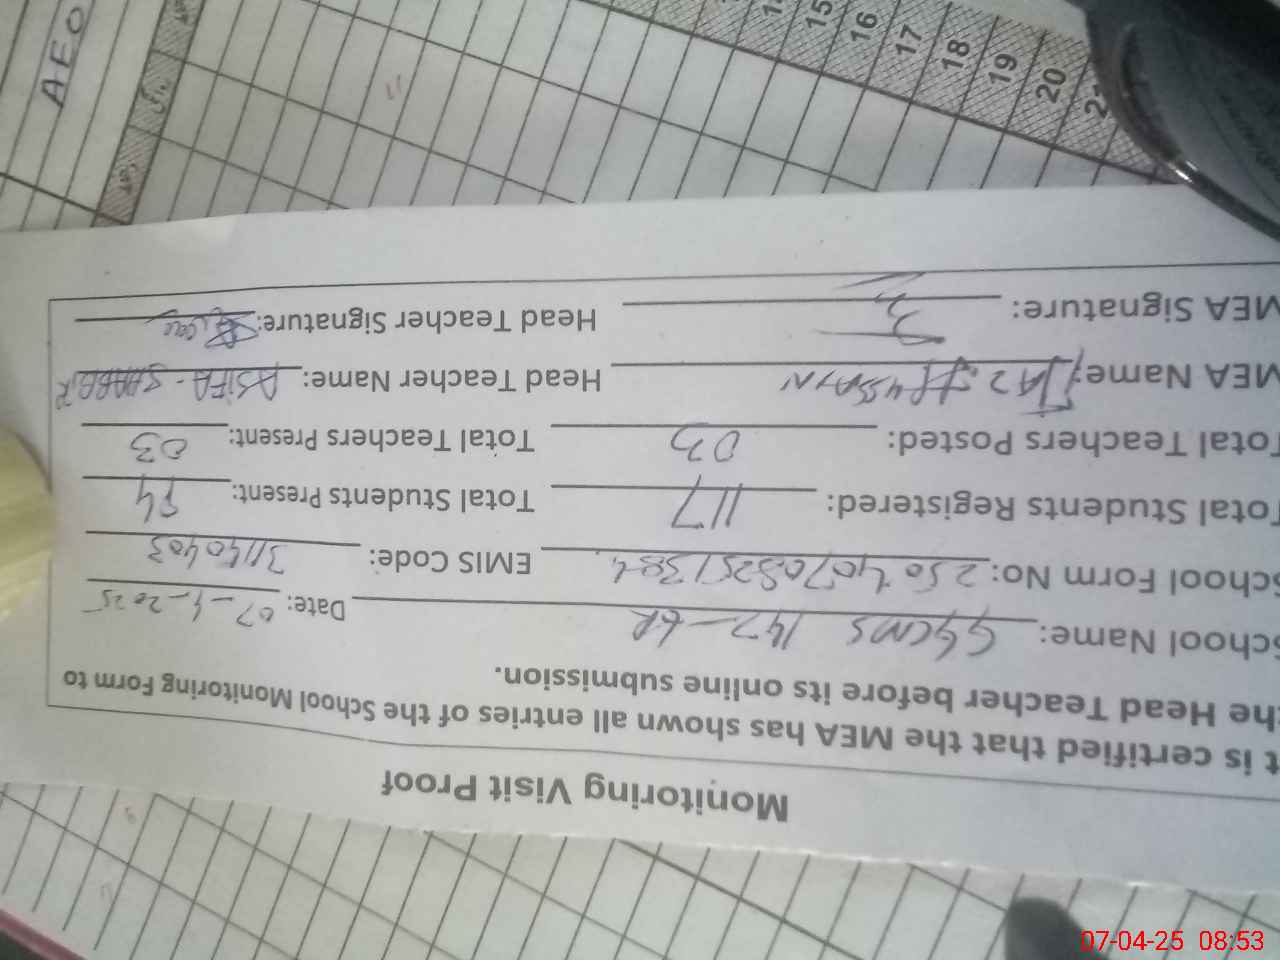 Monitoring Visit Proof
t is certified that the MEA has shown all entries of the School Monitoring Form to
he Head Teacher before its online submission.
School Name: GGCMS 147-6R Date: 07-4-2025
School Form No: EMIS Code: 31140403
Total Students Registered: 117 Total Students Present: 94
Total Teachers Posted: 03 Total Teachers Present: 03
MEA Name: Head Teacher Name: ASIFA - SHABBIR
MEA Signature: Head Teacher Signature:
AEO
15
16
17
18
19
20
07-04-25 08:53